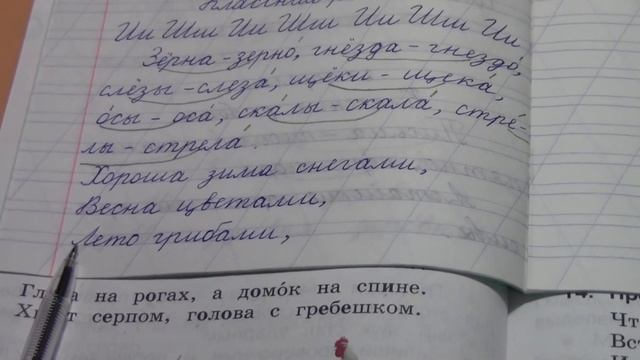 Ии Шш Ии Шш Ии Шш Ии
Зёрна - зерно, гнёзда - гнездо́,
слёзы - слеза́, щёки - щека́,
о́сы - оса́, ска́лы - скала́, стре́-
лы - стрела́.
Хороша зима снегами,
Весна цветами,
Лето грибами,
на рогах, а домо́к на спине.
серпом, голова с гребешком.
14.
Чт
Вс